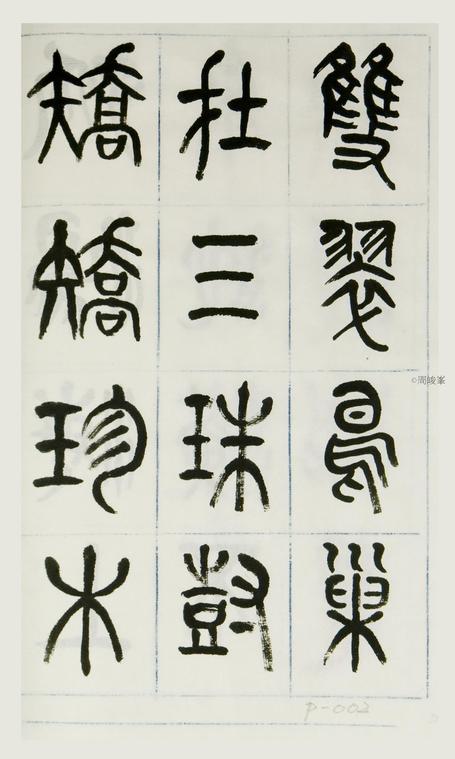 雙翠鳥巢
在三珠樹
矯矯珍木
©周峻峯
P-002